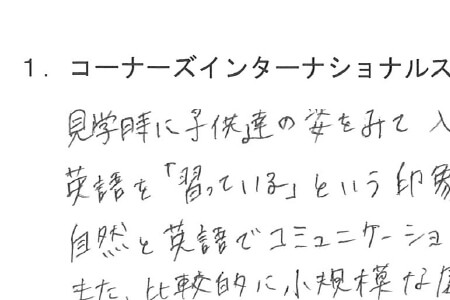 1. コーナーズインターナショナルス
見学時に子供達の姿をみて入
英語を「習っている」という印象
自然と英語でコミュニケーショ
また、比較的に小規模な